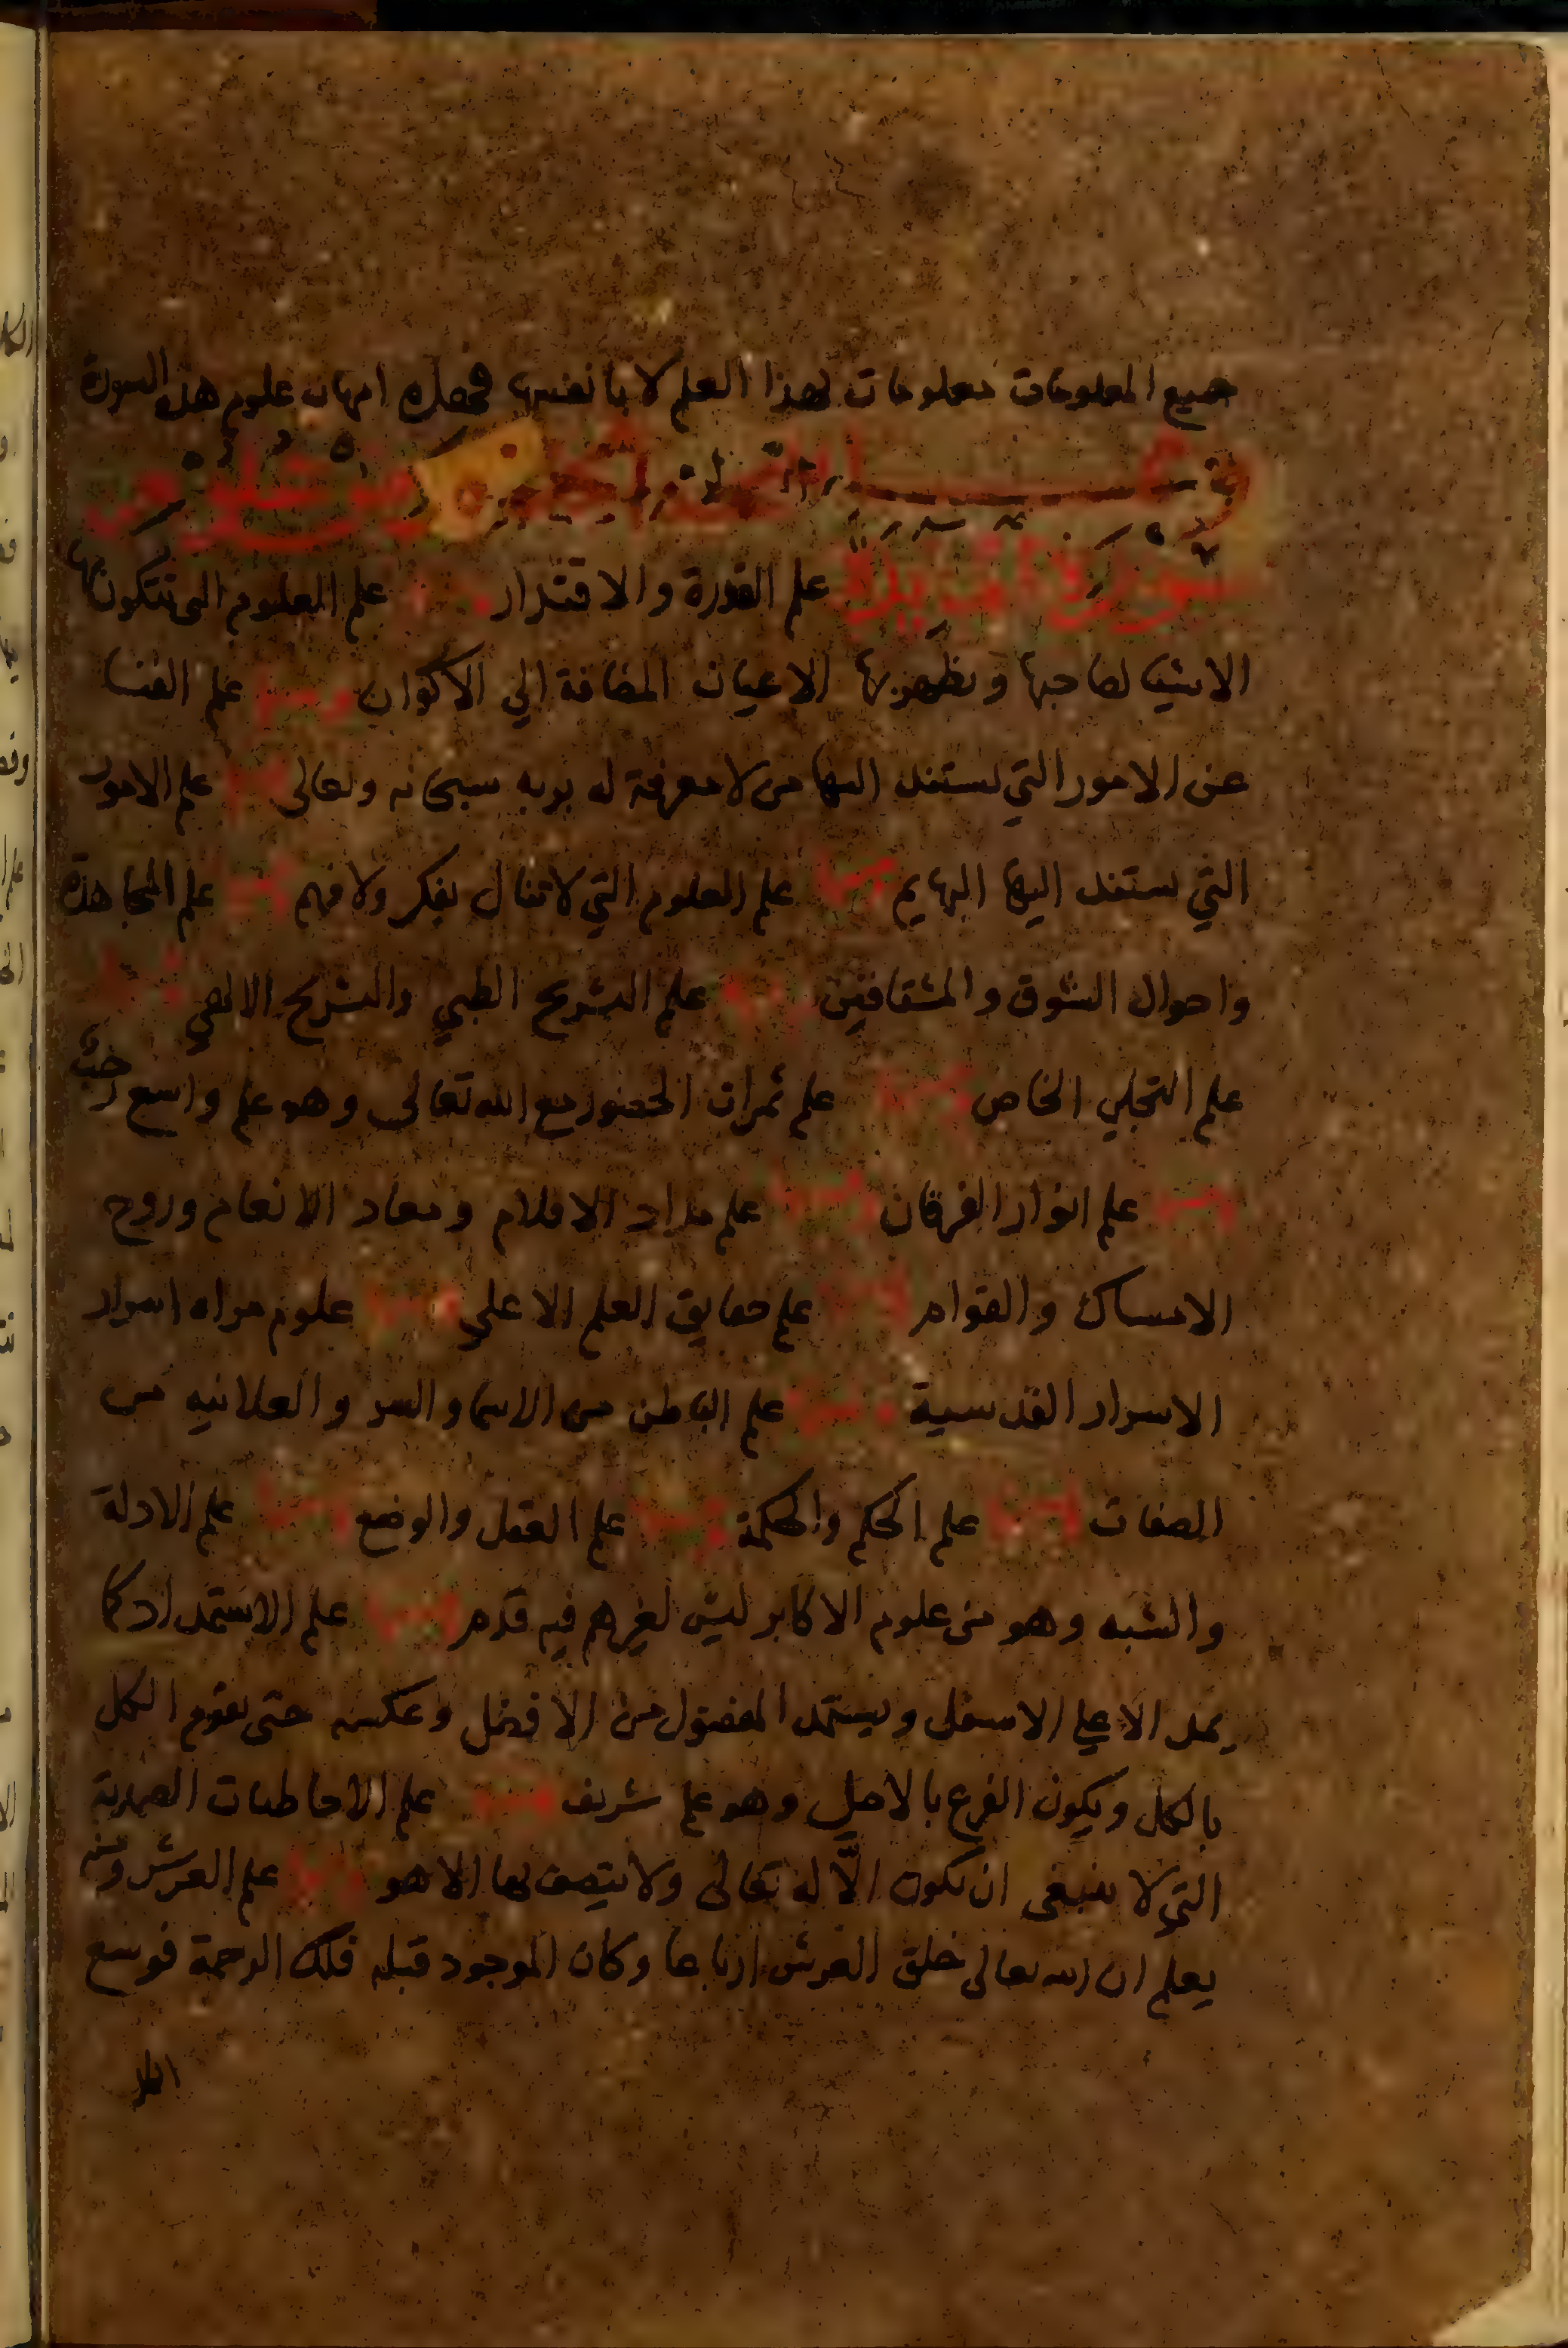 جميع المعلومات معلومات لهذا العلم لا بانفسها فهذه امهات علوم هذه السورة
سورة المايدة علم القدرة والاقتدار ومنها علم العلوم التي تتكون بها
الاشيا لصاحبها وتظهر بها الاعيان المضافة الي الاكوان ومنها علم الفنا
عن الامور التي يستند اليها من لا معرفة له بربه سبحانه وتعالى ومنها علم الامور
التي تستند اليها البهايم ومنها علم العلوم التي لا تنال بفكر ولا فهم ومنها علم المجاهدة
واحوال الشوق والمشتاقين ومنها علم التشريح الطبي والتشريح الالهي ومنها
علم التجلي الخاص ومنها علم ثمرات الحضور مع الله تعالى وهو علم واسع
ومنها علم انوار الفرقان ومنها علم مداد الاقلام ومعاد الانعام وروح
الامساك والقوام ومنها علم حقايق العلم الاعلي ومنها علوم مراه اسرار
الاسرار القدسية ومنها علم الباطن من الاسما والسر والعلانيه من
الصفات ومنها علم الحكم والحكمة ومنها علم العقل والوضع ومنها علم الادلة
والشبه وهو من علوم الاكابر ليس لغيرهم فيه قدم ومنها علم الاستمداد كما
يمد الاعلي الاسفل ويستمد المفضول من الافضل وعكسه حتى يقوم الكل
بالكل ويكون الفرع بالاصل وهو علم شريف ومنها علم الاحاطيات الصمدية
التي لا ينبغي ان تكون الّا له تعالى ولا يتصف بها الا هو ومنها علم العرش ومنه
يعلم ان الله تعالى خلق العرش ارباعا وكان الموجود قبله فلك الرحمة فوسع